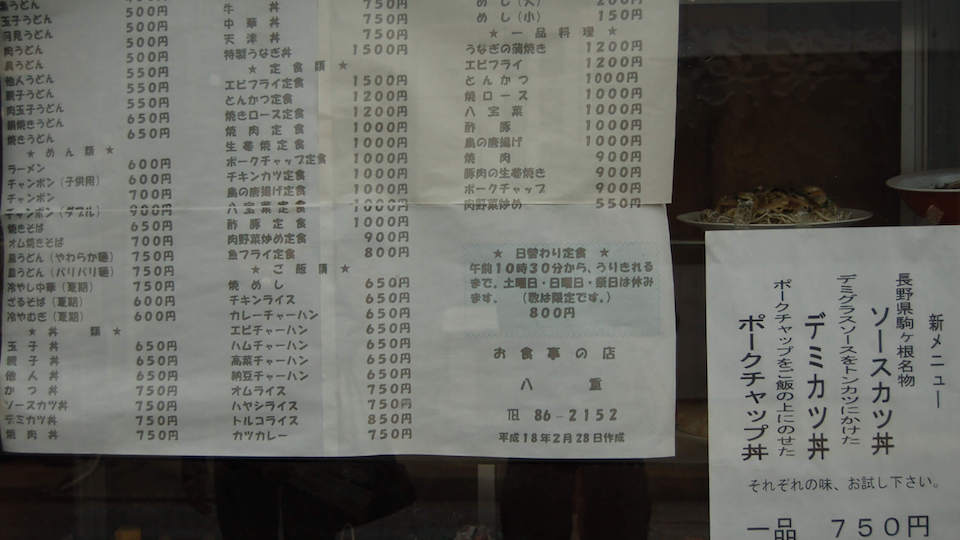 玉子うどん 500円
月見うどん 500円
肉うどん 500円
皿うどん 550円
他人うどん 550円
親子うどん 550円
肉玉子うどん 550円
鍋焼きうどん 650円
焼きうどん 650円
★ めん類 ★
ラーメン 600円
チャンポン(子供用) 600円
チャンポン 700円
チャンポン(ダブル) 900円
焼きそば 650円
オム焼きそば 700円
皿うどん(やわらか麺) 750円
皿うどん(パリパリ麺) 750円
冷やし中華(夏期) 750円
ざるそば(夏期) 600円
冷やむぎ(夏期) 600円
★ 丼類 ★
玉子丼 650円
親子丼 650円
他人丼 650円
かつ丼 750円
ソースカツ丼 750円
デミカツ丼 750円
焼肉丼 750円
牛丼 750円
中華丼 750円
天津丼 750円
特製うなぎ丼 1500円
★ 定食類 ★
エビフライ定食 1500円
とんかつ定食 1200円
焼きロース定食 1200円
焼肉定食 1000円
生姜焼定食 1000円
ポークチャップ定食 1000円
チキンカツ定食 1000円
鳥の唐揚げ定食 1000円
八宝菜定食 1000円
酢豚定食 1000円
肉野菜炒め定食 900円
魚フライ定食 800円
★ ご飯類 ★
焼めし 650円
チキンライス 650円
カレーチャーハン 650円
エビチャーハン 650円
ハムチャーハン 650円
高菜チャーハン 650円
納豆チャーハン 650円
オムライス 750円
ハヤシライス 750円
トルコライス 850円
カツカレー 750円
めし(大) 200円
めし(小) 150円
★ 一品料理 ★
うなぎの蒲焼き 1200円
エビフライ 1200円
とんかつ 1000円
焼ロース 1000円
八宝菜 1000円
酢豚 1000円
鳥の唐揚げ 1000円
焼肉 900円
豚肉の生姜焼き 900円
ポークチャップ 900円
肉野菜炒め 550円
★ 日替わり定食 ★
午前10時30分から、うりきれる
まで、土曜日・日曜日・祭日は休み
ます。 (数は限定です。)
800円
お食事の店
八重
TEL 86-2152
平成18年2月28日作成
新メニュー
長野県駒ヶ根名物
ソースカツ丼
デミグラスソースをトンカツにかけた
デミカツ丼
ポークチャップをご飯の上にのせた
ポークチャップ丼
それぞれの味、お試し下さい。
一品 750円